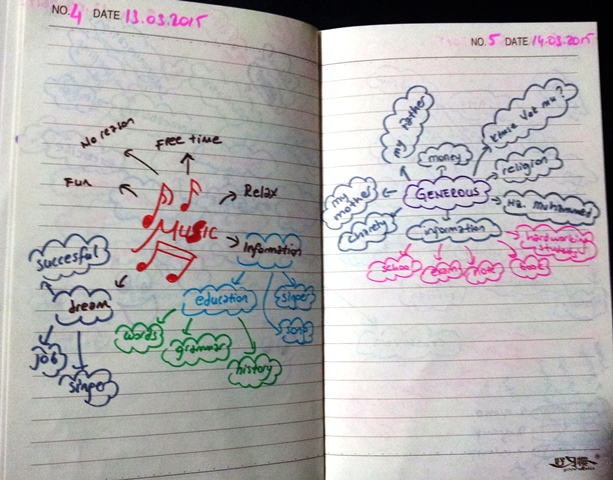 NO. 4 DATE 13.03.2015
No reason
Free time
Fun
Relax
MUSIC
Information
Succesful
dream
education
singer
song
words
grammar
history
job
singer
NO. 5 DATE 14.03.2015
my father
Kimse Yok mu?
money
religion
my mother
GENEROUS
Hz. Muhammed
charity
information
hardworking students
school
exam
note
book